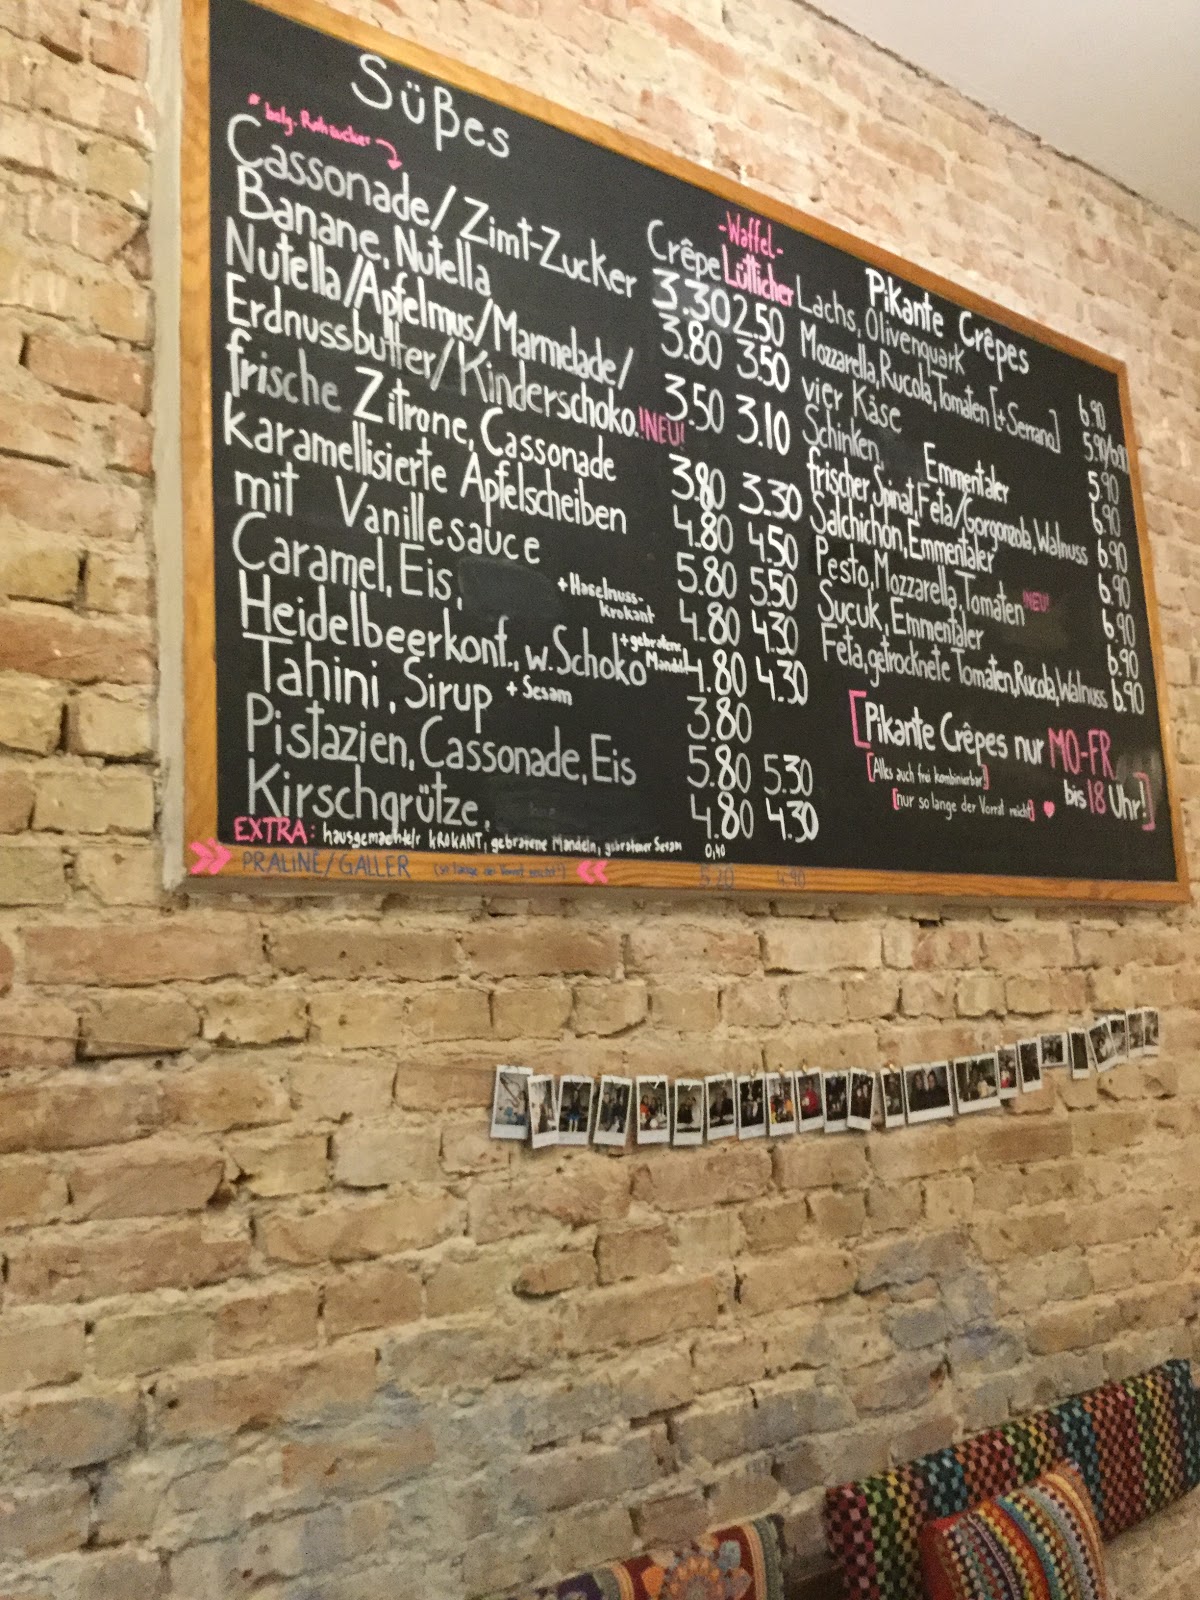 Süßes
* belg. Rohzucker
Crêpe
-Waffel-
Lütticher
Cassonade/Zimt-Zucker 3.30 2.50
Banane, Nutella 3.80 3.50
Nutella/Apfelmus/Marmelade/
Erdnussbutter/Kinderschoko. !NEU! 3.50 3.10
frische Zitrone, Cassonade 3.80 3.30
karamellisierte Apfelscheiben 4.80 4.50
mit Vanillesauce 5.80 5.50
Caramel, Eis, +Haselnuss-
Krokant 4.80 4.30
Heidelbeerkonf., w.Schoko +gebratene
Mandel 4.80 4.30
Tahini, Sirup + Sesam 3.80
Pistazien, Cassonade, Eis 5.80 5.30
Kirschgrütze, 4.80 4.30
EXTRA: hausgemachte/r KROKANT, gebratene Mandeln, gebratener Sesam 0,40
PRALINÉ/GALLER (so lange der Vorrat reicht!) 5.20 4.90
Pikante Crêpes
Lachs, Olivenquark 6.90
Mozzarella, Rucola, Tomaten [+Serrano] 5.90/6.90
vier Käse 5.90
Schinken, Emmentaler 6.90
frischer Spinat, Feta/Gorgonzola, Walnuss 6.90
Salchichon, Emmentaler 6.90
Pesto, Mozzarella, Tomaten NEU! 6.90
Sucuk, Emmentaler 6.90
Feta, getrocknete Tomaten, Rucola, Walnuss 6.90
[Pikante Crêpes nur MO-FR
bis 18 Uhr!]
[Alles auch frei kombinierbar]
[nur so lange der Vorrat reicht]